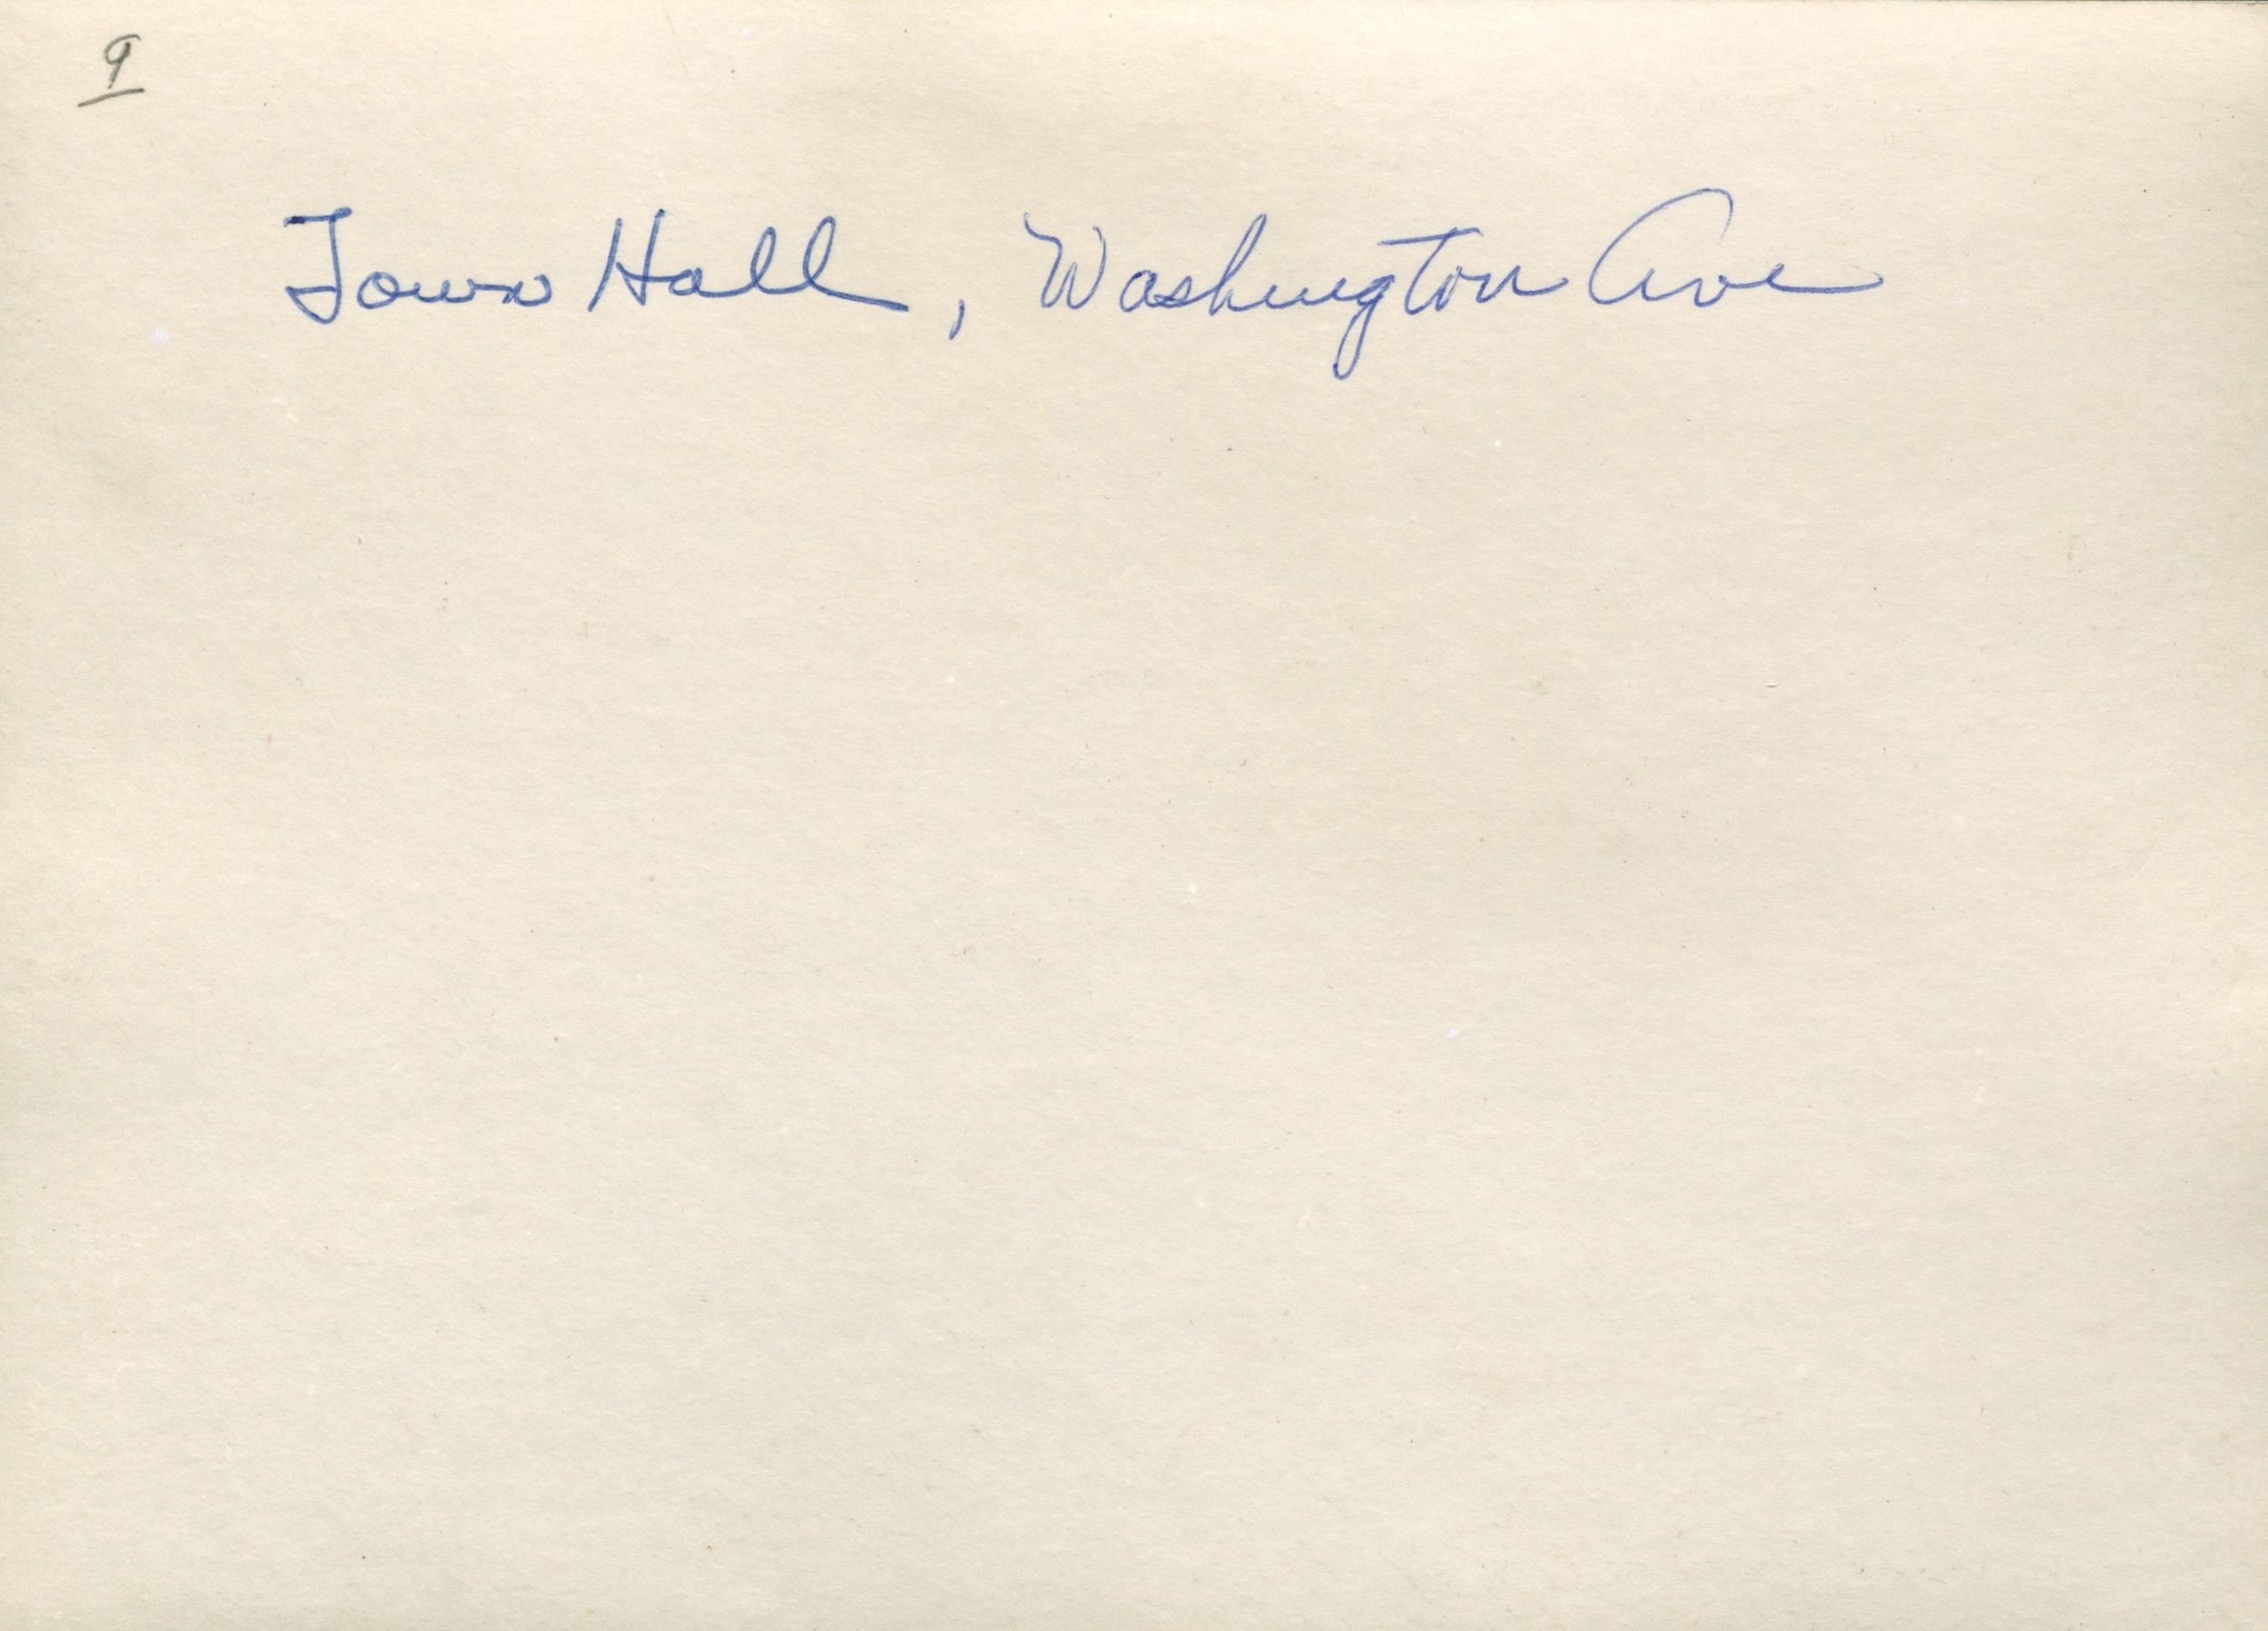 9
Town Hall, Washington Ave